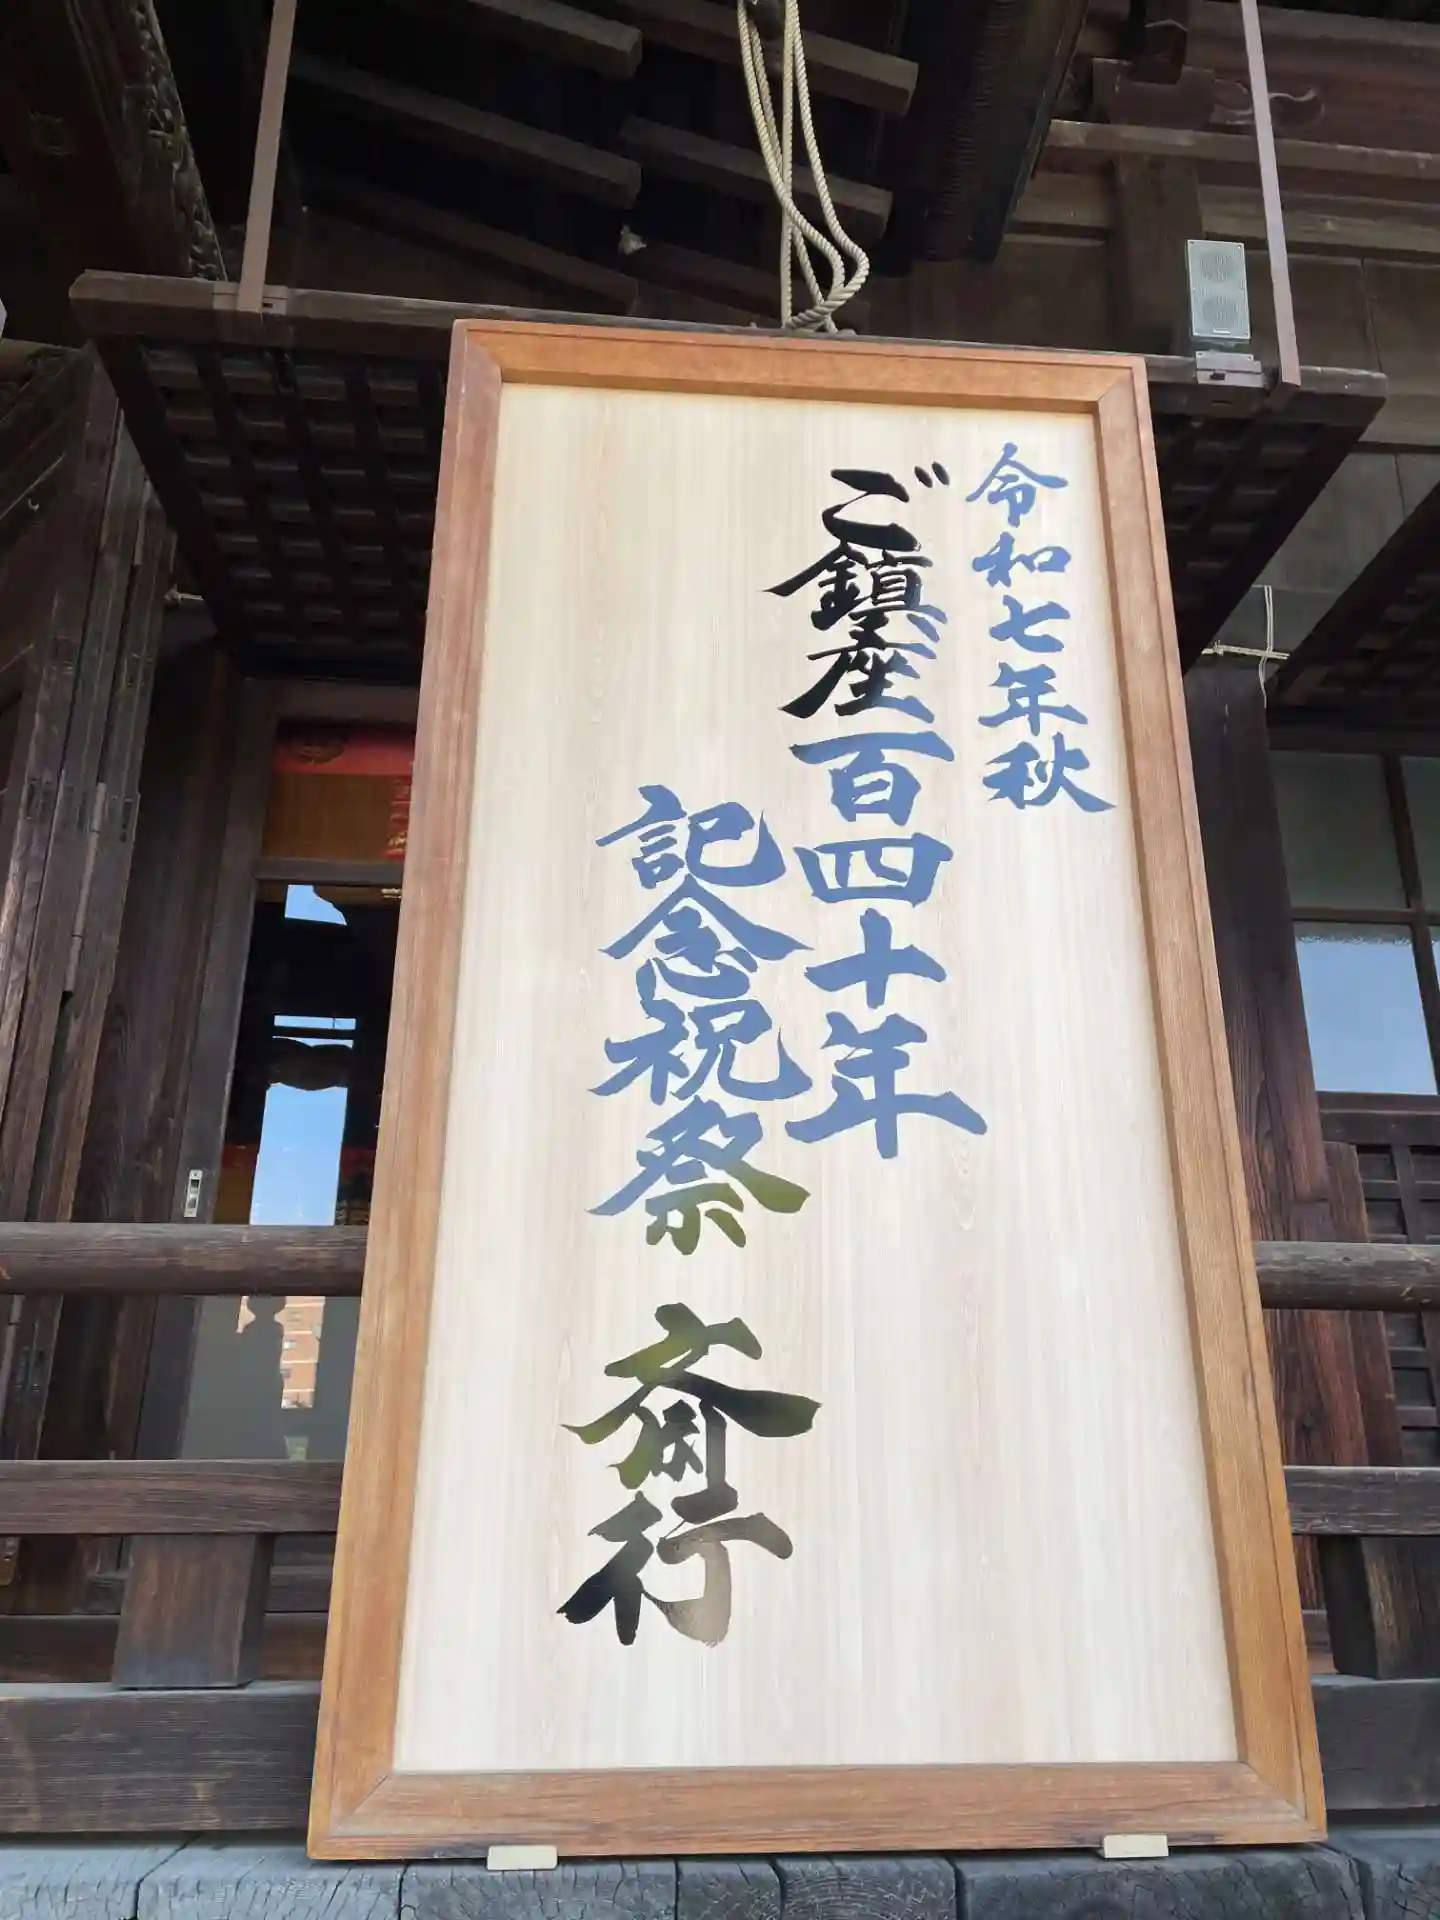 令和七年秋
ご鎮座百四十年
記念祝祭 斎行